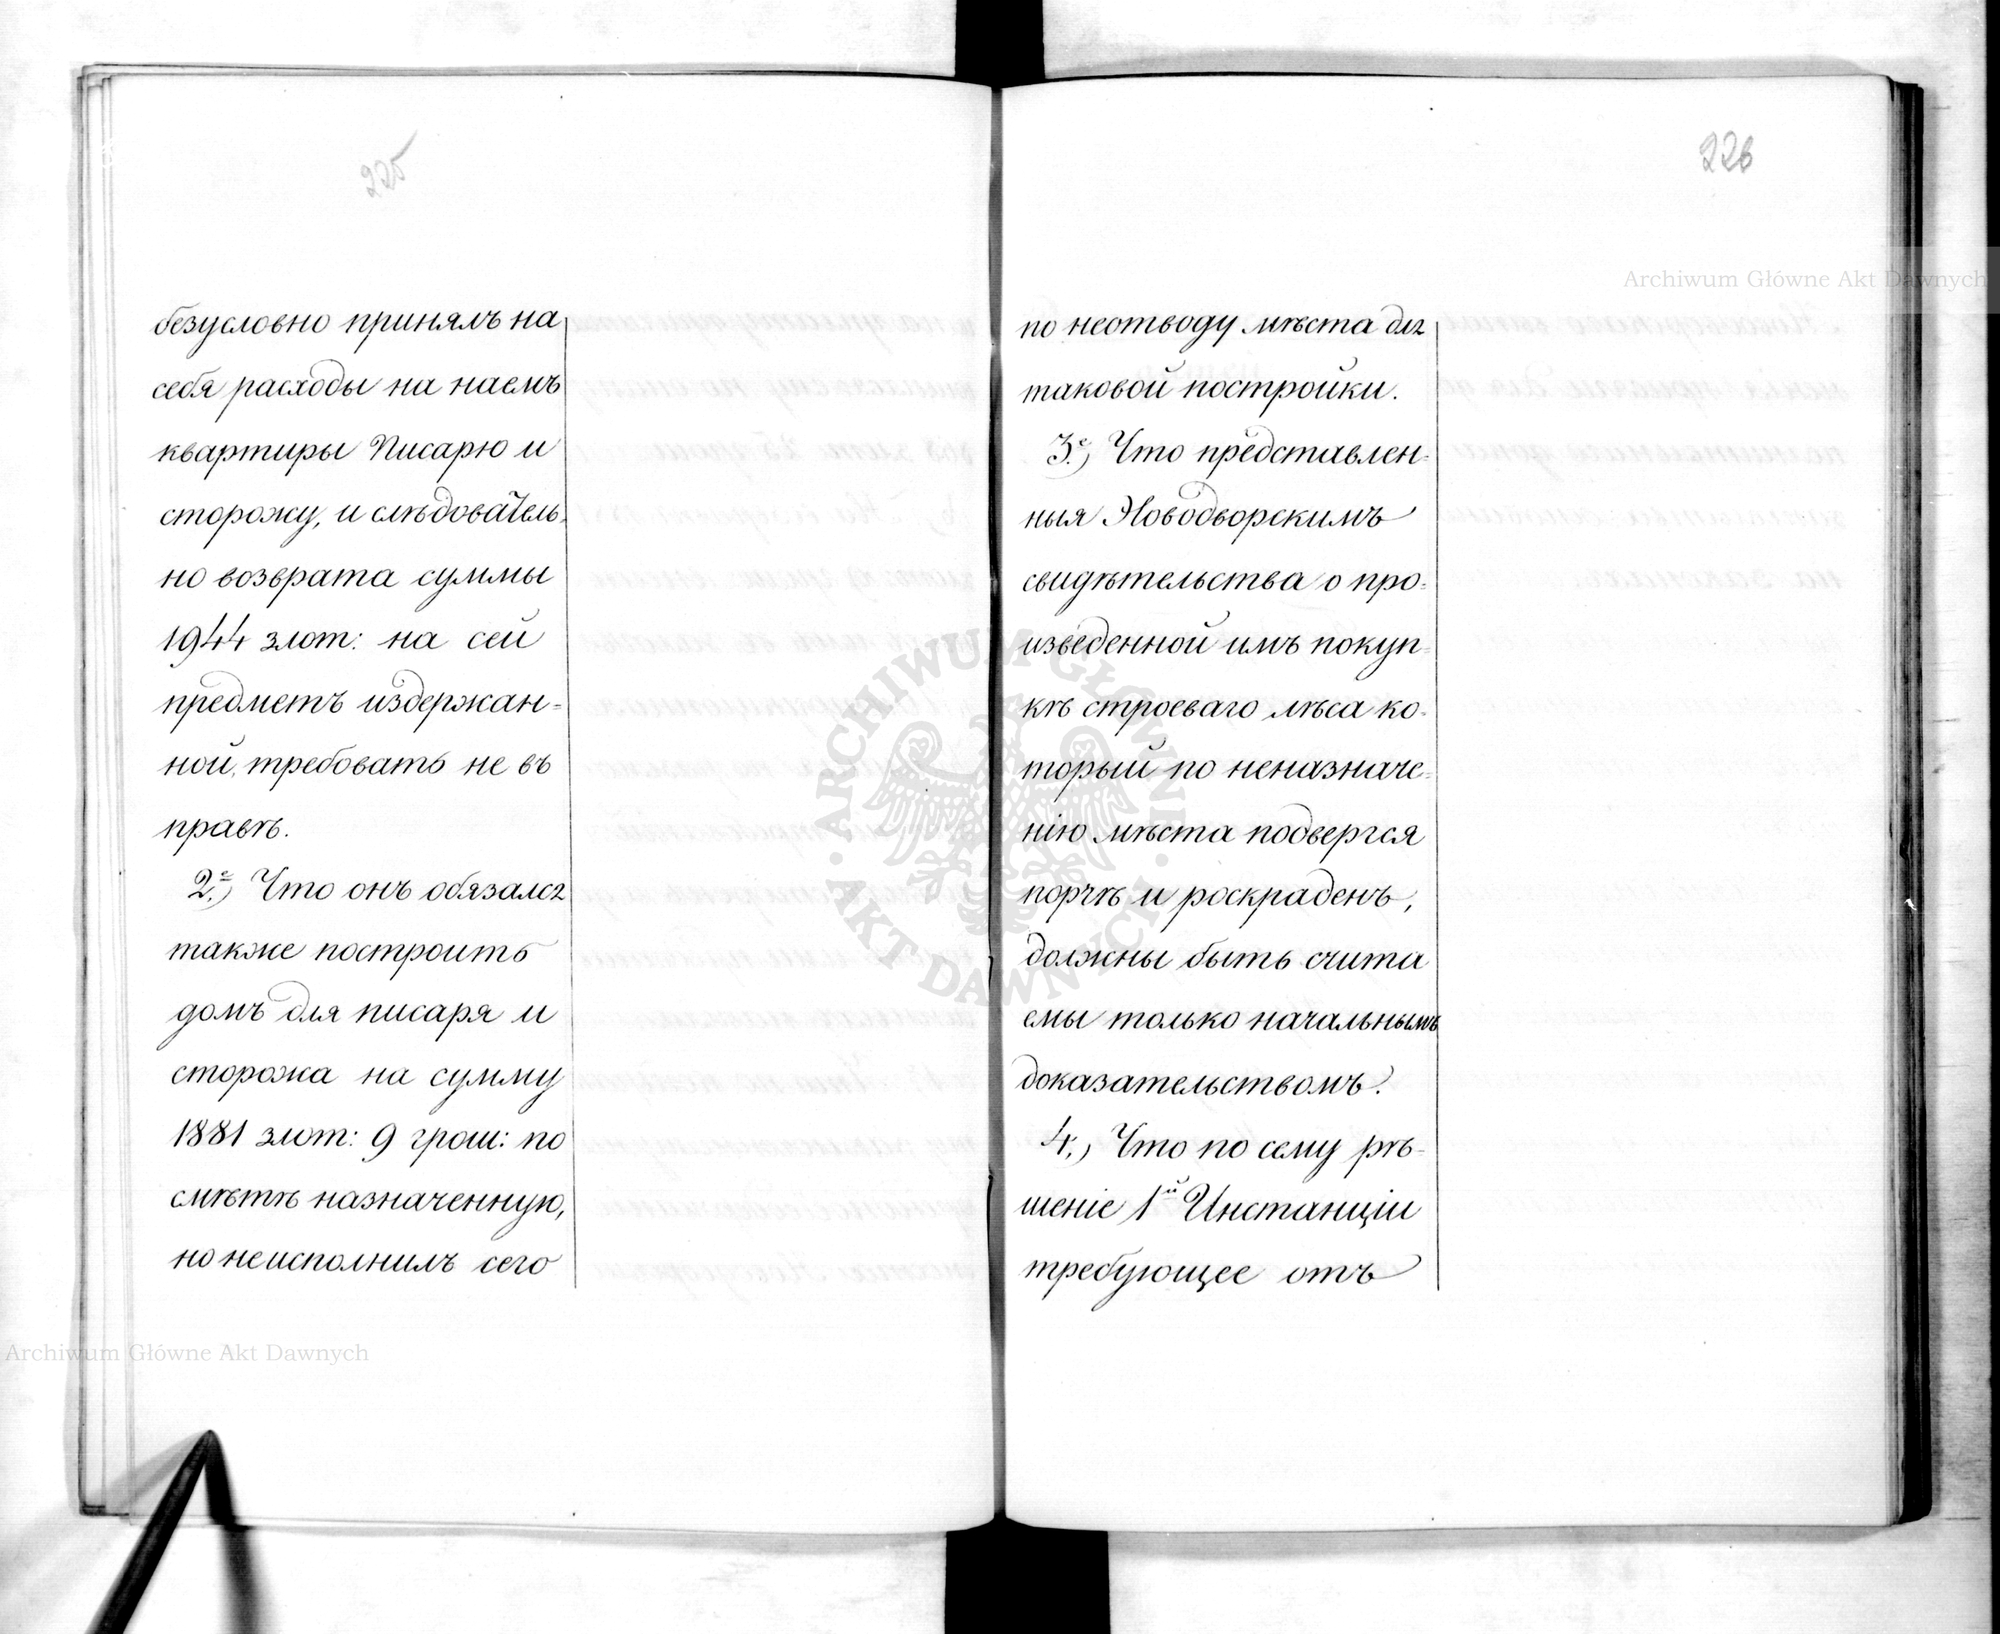 225
безусловно принялъ на
себя расходы на наемъ
квартиры Писарю и
сторожу, и слѣдователь-
но возврата суммы
1944 злот: на сей
предметъ издержан-
ной, требовать не въ
правѣ.
2.е) Что онъ обязался
также построить
домъ для писаря и
сторожа на сумму
1881 злот: 9 грош: по
смѣтѣ назначенную,
но неисполнилъ сего
Archiwum Główne Akt Dawnych
226
Archiwum Główne Akt Dawnych
по неотводу мѣста для
таковой постройки.
3.е) Что представлен-
ныя Новодворскимъ
свидѣтельства о про-
изведенной имъ покуп-
кѣ строеваго лѣса ко-
торый по неназначе-
нію мѣста подвергся
порчѣ и роскраденъ,
должны быть счита
емы только начальнымъ
доказательствомъ.
4.) Что по сему рѣ-
шеніе 1й Инстанціи
требующее отъ
ARCHIWUM GŁÓWNE · AKT DAWNYCH ·